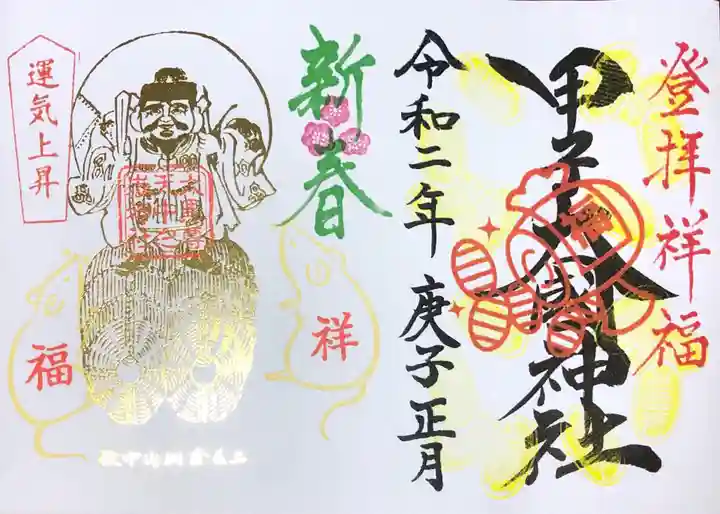 登拝祥福
甲子大國神社
令和二年 庚子正月
新春
祥
福
運気上昇